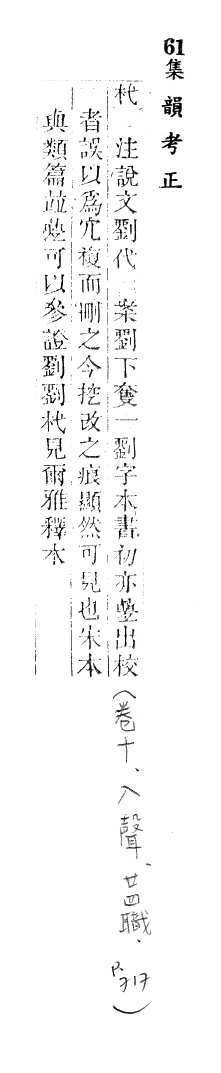 61集韻考正
杙 注說文劉代 案劉下奪一劉字本書初亦疊出校
者誤以爲冗複而刪之今挖改之痕顯然可見也朱本
與類篇竝疊可以參證劉劉杙見爾雅釋木
(卷十、入聲、廿四職、P.717)